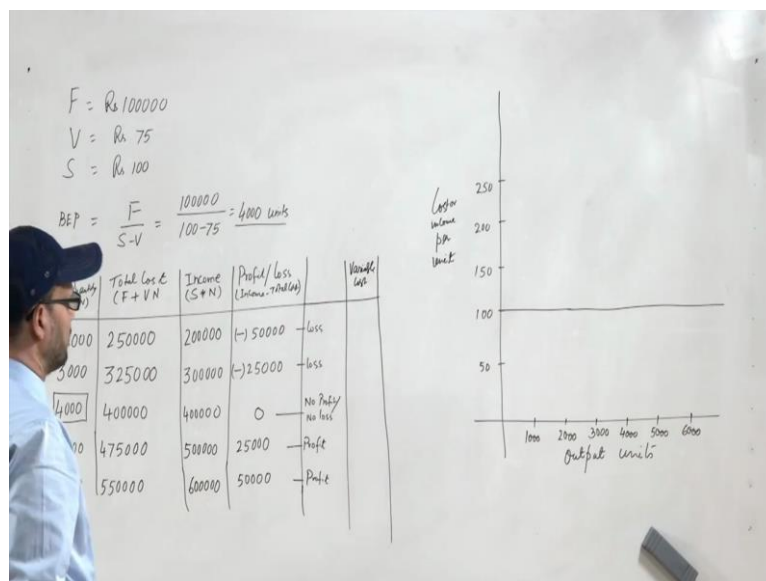 F = Rs 100000
V = Rs 75
S = Rs 100
BEP = F / S-V = 100000 / 100-75 = 4000 units
Total Cost Income Profit/loss Variable
(F + VN (S*N) (Income - Total Cost) Cost
000 250000 200000 (-) 50000 - loss
3000 325000 300000 (-) 25000 - loss
4000 400000 400000 0 - No Profit/
No loss
00 475000 500000 25000 - Profit
550000 600000 50000 - Profit
Cost or
income
per
unit
250
200
150
100
50
1000 2000 3000 4000 5000 6000
Output units